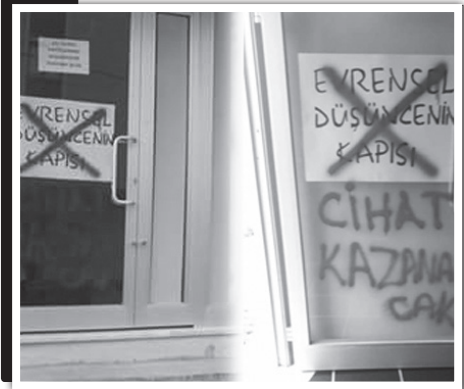 EVRENSEL
DÜŞÜNCENİN
KAPISI
EVRENSEL
DÜŞÜNCENİN
KAPISI
CİHAT
KAZANA
CAK